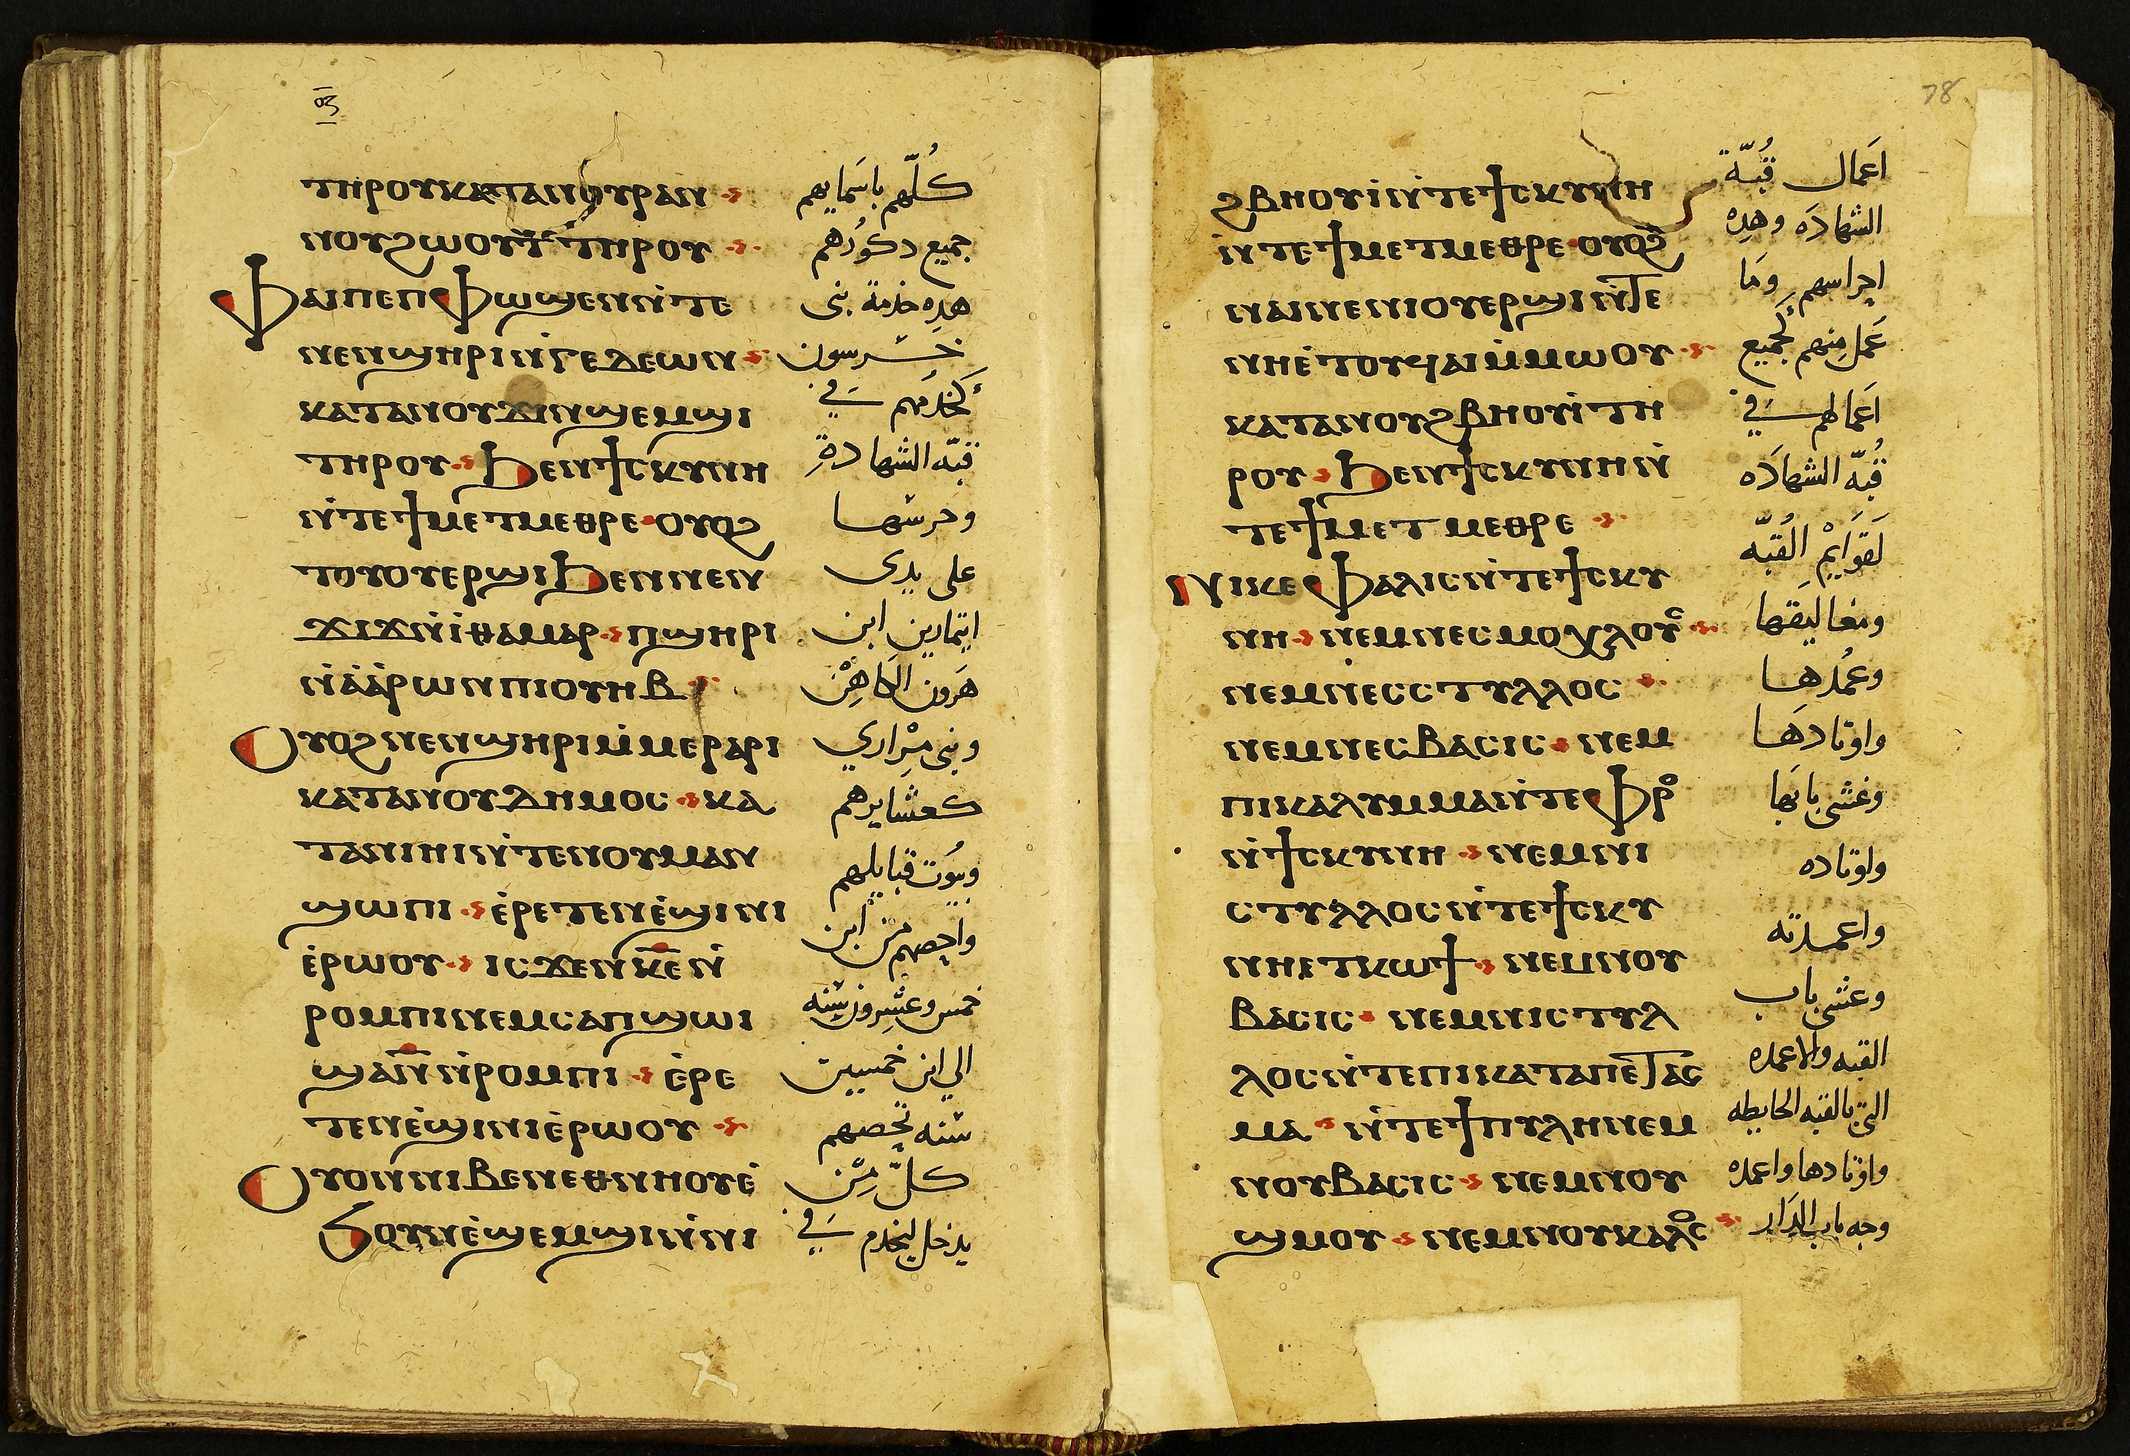 ⲟⲏ
ⲧⲏⲣⲟⲩ ⲕⲁⲧⲁ ⲛⲟⲩⲣⲁⲛ
ⲛⲟⲩϩⲱⲟⲩⲧ ⲧⲏⲣⲟⲩ
Ⲫⲁⲓ ⲡⲉ ⲡⲫⲱϣⲉⲛ ⲛ̇ⲧⲉ
ⲛⲉⲛϣⲏⲣⲓ ⲛ̇ⲅⲉⲇⲉⲱⲛ
ⲕⲁⲧⲁ ⲛⲟⲩϫⲓⲛϣⲉⲙϣⲓ
ⲧⲏⲣⲟⲩ ϧⲉⲛ ϯⲥⲕⲩⲛⲏ
ⲛ̇ⲧⲉ ϯⲙⲉⲧⲙⲉⲑⲣⲉ ⲟⲩⲟϩ
ⲧⲟⲩⲟⲩⲉⲣϣⲓ ϧⲉⲛ ⲛⲉⲛ
ϫⲓϫ ⲛ̇ⲓ̇ⲑⲁⲙⲁⲣ ⲡϣⲏⲣⲓ
ⲛ̇ⲁ̇ⲁ̇ⲣⲱⲛ ⲡⲓⲟⲩⲏⲃ
Ⲟⲩⲟϩ ⲛⲉⲛϣⲏⲣⲓ ⲙ̇ⲙⲉⲣⲁⲣⲓ
ⲕⲁⲧⲁ ⲛⲟⲩⲇⲏⲙⲟⲥ ⲕⲁ
ⲧⲁ ⲛⲓⲏⲓ ⲛ̇ⲧⲉ ⲛⲟⲩⲙⲁⲛ
ϣⲱⲡⲓ ⲉ̇ⲣⲉⲧⲉⲛⲉ̇ϣⲓⲛⲓ
ⲉ̇ⲣⲱⲟⲩ ⲓⲥϫⲉⲛ ⲕ̅ⲉ̅ ⲛ̇
ⲣⲟⲙⲡⲓ ⲛⲉⲙ ⲥⲁⲡϣⲱⲓ
ϣⲁ ⲛ̅ ⲛ̇ⲣⲟⲙⲡⲓ ⲉ̇ⲣⲉ
ⲧⲉⲛⲉ̇ϣⲓⲛⲓ ⲉ̇ⲣⲱⲟⲩ
Ⲟⲩⲟⲛ ⲛⲓⲃⲉⲛ ⲉⲑⲛⲏⲟⲩ ⲉ̇
ϧⲟⲩⲛ ⲉ̇ϣⲉⲙϣⲓ ⲛ̇ⲛⲓ
كُلّهم باسَمايهم
جميع دكورُهم
هدِه خدمة بنى
خـرسون
كخدَمهم في
قبّه الشهادةِ
وحرسَها
على يدى
ايتمارين ابن
هَرون الكاهِنْ
وبنى مِرْاري
كعشايرهم
وبيُوت قبايلهم
واحِصِهم من ابن
خمس وعشِرون سنه
الى ابن خمسين
سنه تحِصِهم
كلّ مِنْ
يدخل ليخدم في
78
ϩⲃⲏⲟⲩⲓ̇ ⲛ̇ⲧⲉ ϯⲥⲕⲩⲛⲏ
ⲛ̇ⲧⲉ ϯⲙⲉⲧⲙⲉⲑⲣⲉ ⲟⲩⲟϩ
ⲛⲁⲓ ⲛⲉ ⲛⲓⲟⲩⲉⲣϣⲓ ⲛ̇ⲧⲉ
ⲛⲏⲉ̇ⲧⲟⲩϥⲁⲓ ⲙ̇ⲙⲱⲟⲩ
ⲕⲁⲧⲁ ⲛⲟⲩϩⲃⲏⲟⲩⲓ̇ ⲧⲏ
ⲣⲟⲩ ϧⲉⲛ ϯⲥⲕⲩⲛⲏ ⲛ̇
ⲧⲉ ϯⲙⲉⲧⲙⲉⲑⲣⲉ
Ⲛⲓⲕⲉⲫⲁⲗⲓⲥ ⲛ̇ⲧⲉ ϯⲥⲕⲩ
ⲛⲏ ⲛⲉⲙ ⲛⲉⲥⲙⲟⲭⲗⲟⲩⲥ
ⲛⲉⲙ ⲛⲉⲥⲥⲧⲩⲗⲗⲟⲥ
ⲛⲉⲙ ⲛⲉⲥⲃⲁⲥⲓⲥ ⲛⲉⲙ
ⲡⲓⲕⲁⲗⲩⲙⲙⲁ ⲛ̇ⲧⲉ ⲫⲣⲟ
ⲛ̇ϯⲥⲕⲩⲛⲏ ⲛⲉⲙ ⲛⲓ
ⲥⲧⲩⲗⲗⲟⲥ ⲛ̇ⲧⲉ ϯⲥⲕⲩ
ⲛⲏⲉⲧⲕⲱϯ ⲛⲉⲙ ⲛⲟⲩ
ⲃⲁⲥⲓⲥ ⲛⲉⲙ ⲛⲓⲥⲧⲩⲗ
ⲗⲟⲥ ⲛ̇ⲧⲉ ⲡⲓⲕⲁⲧⲁⲡⲉⲧⲁⲥ
ⲙⲁ ⲛ̇ⲧⲉ ϯⲡⲩⲗⲏ ⲛⲉⲙ
ⲛⲟⲩⲃⲁⲥⲓⲥ ⲛⲉⲙ ⲛⲟⲩ
ϣⲙⲟⲩ ⲛⲉⲙ ⲛⲟⲩⲕⲁⲗⲟⲥ
اعَمال قُبّة
الشهادَه وهدِه
احِراسهم وما
عَمل مِنهم كجميع
اعَمالهم في
قُبّه الشهادَه
لَقوَايمْ القُبّه
ومغاليَقها
وعمُدهـا
واوتادهَـا
وغشى بابَها
واوتاده
واعمـدته
وعشى باب
القبه والاعمده
التي بالقبه الحايطه
واوتادها واعمده
وجه باب الدَار